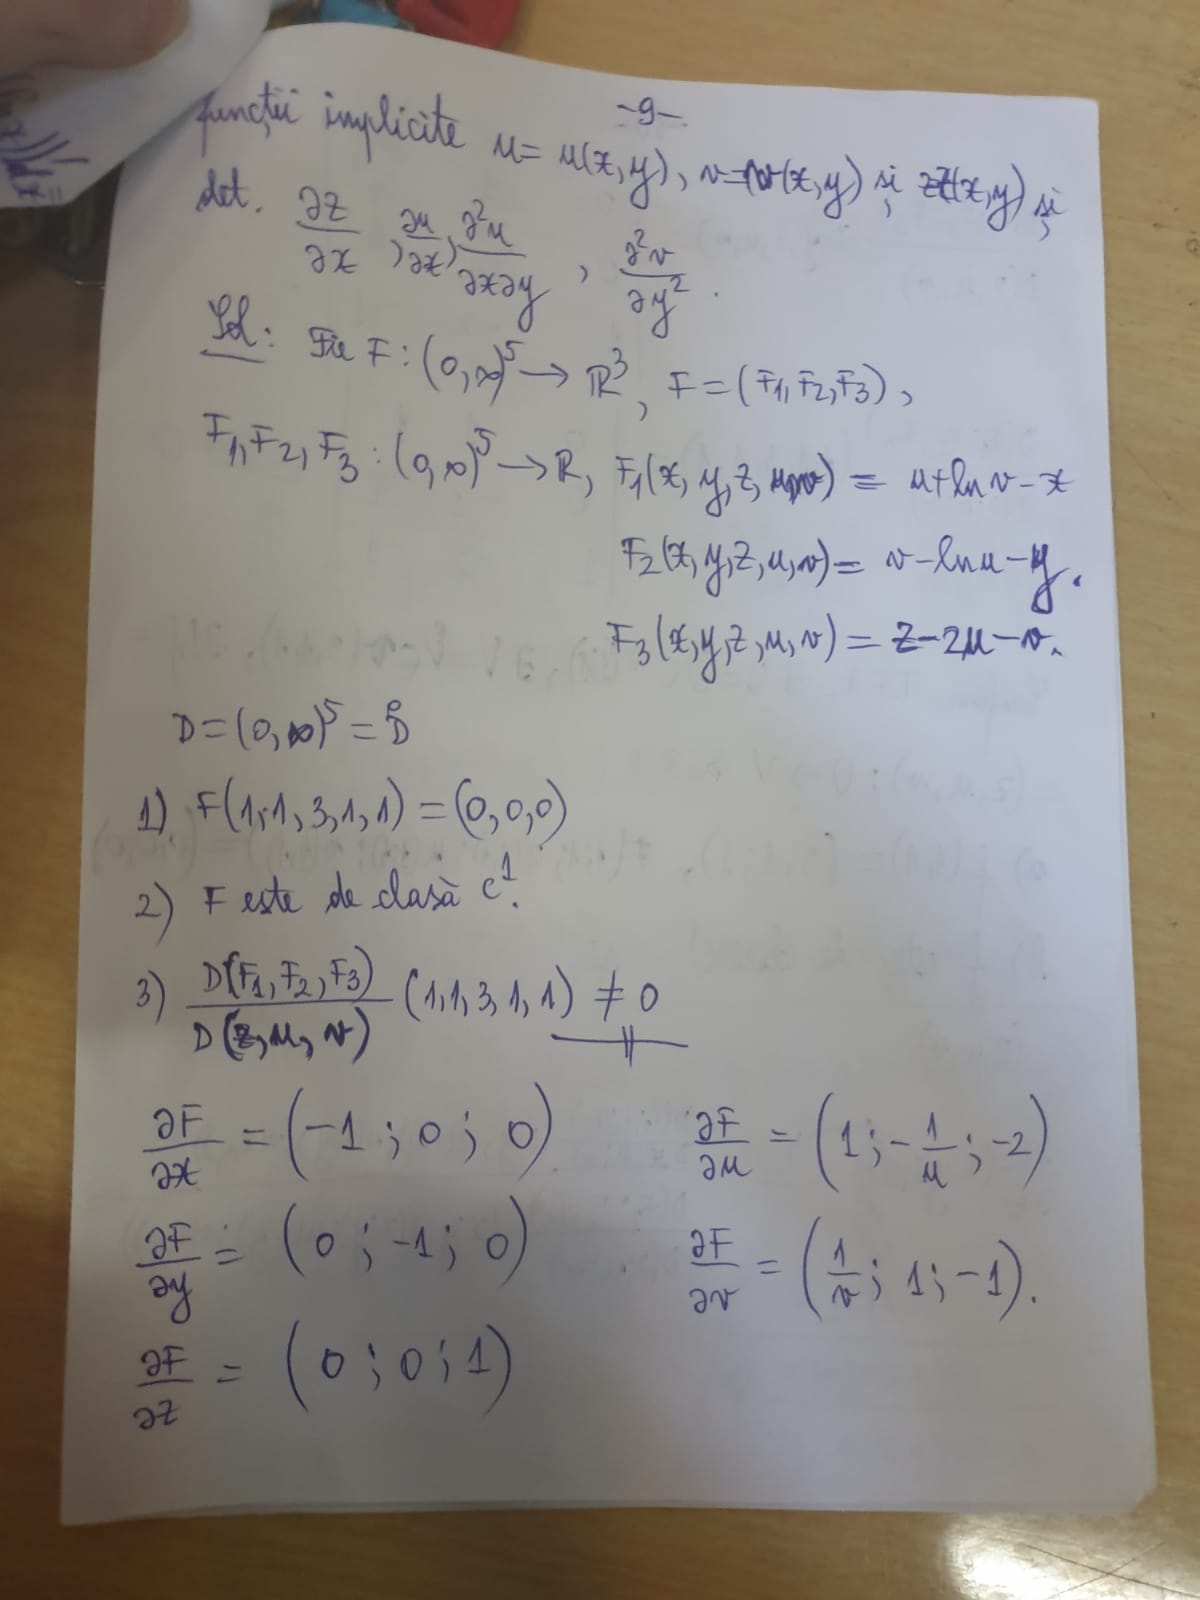 -9-
funcții implicite u = u(x,y), v = v(x,y) și z=z(x,y) și
det. ∂z/∂x , ∂u/∂x , ∂²u/∂x∂y , ∂²v/∂y² .
Sol: Fie F : (0,∞)⁵ → ℝ³, F = (F₁, F₂, F₃),
F₁, F₂, F₃ : (0,∞)⁵ → ℝ, F₁(x, y, z, u, v) = u+ln v - x
F₂(x, y, z, u, v) = v - ln u - y.
F₃(x, y, z, u, v) = z - 2u - v.
D = (0,∞)⁵ = D̊
1) F(1,1,3,1,1) = (0,0,0)
2) F este de clasă C¹.
3) D(F₁, F₂, F₃)/D(z, u, v) (1,1,3,1,1) ≠ 0
∂F/∂x = (-1 ; 0 ; 0) ∂F/∂u = (1 ; -1/u ; -2)
∂F/∂y = (0 ; -1 ; 0) ∂F/∂v = (1/v ; 1 ; -1).
∂F/∂z = (0 ; 0 ; 1)